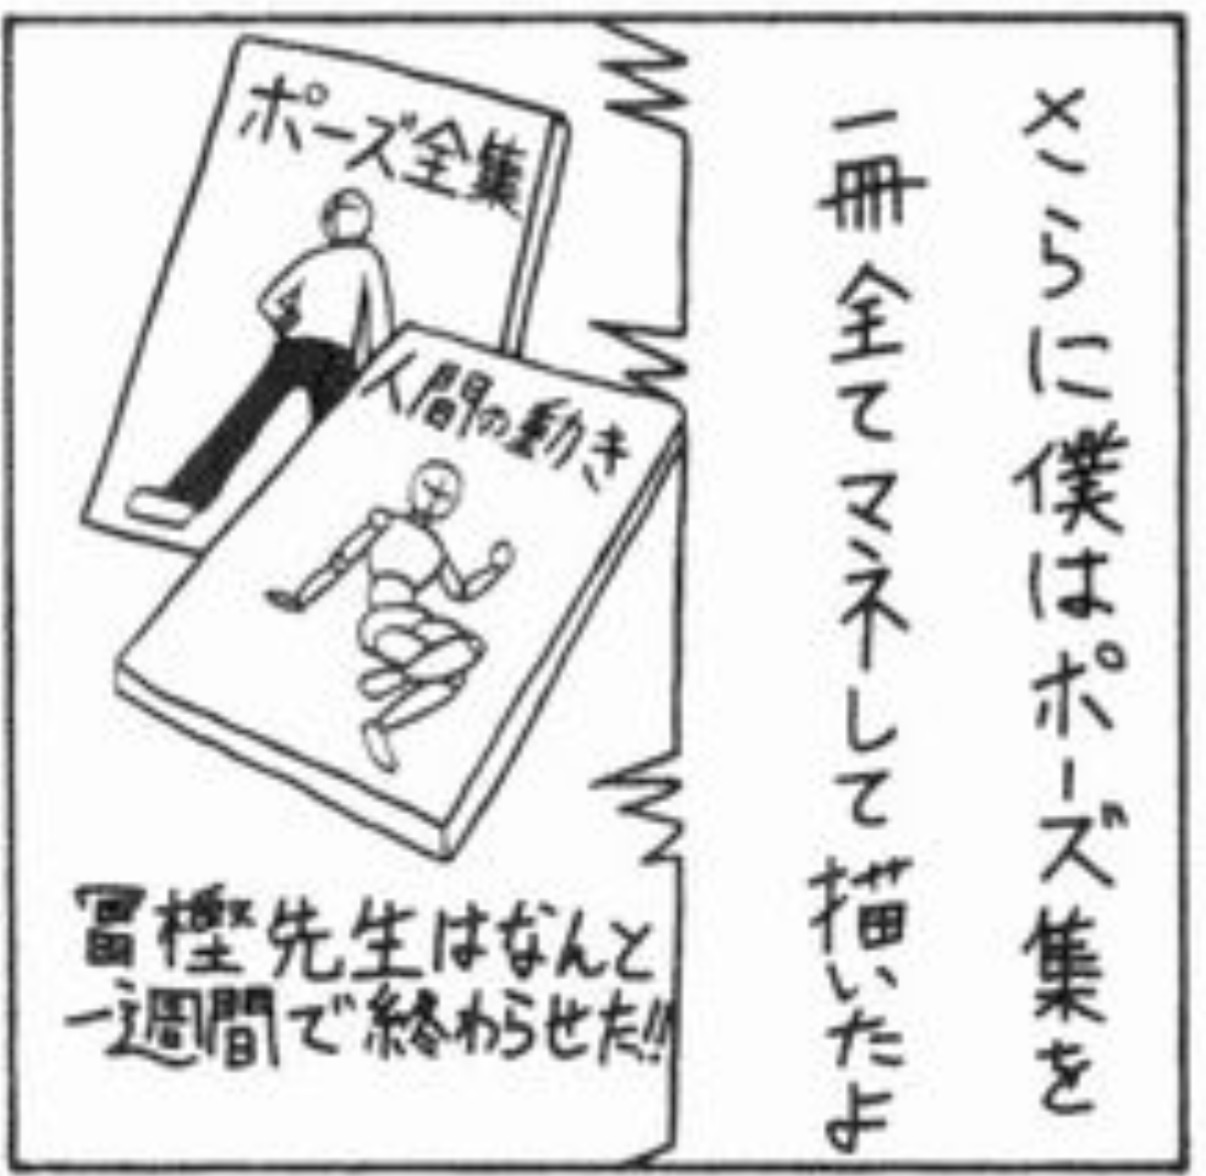 さらに僕はポーズ集を
一冊全てマネして描いたよ
ポーズ全集
人間の動き
冨樫先生はなんと
一週間で終わらせた!!